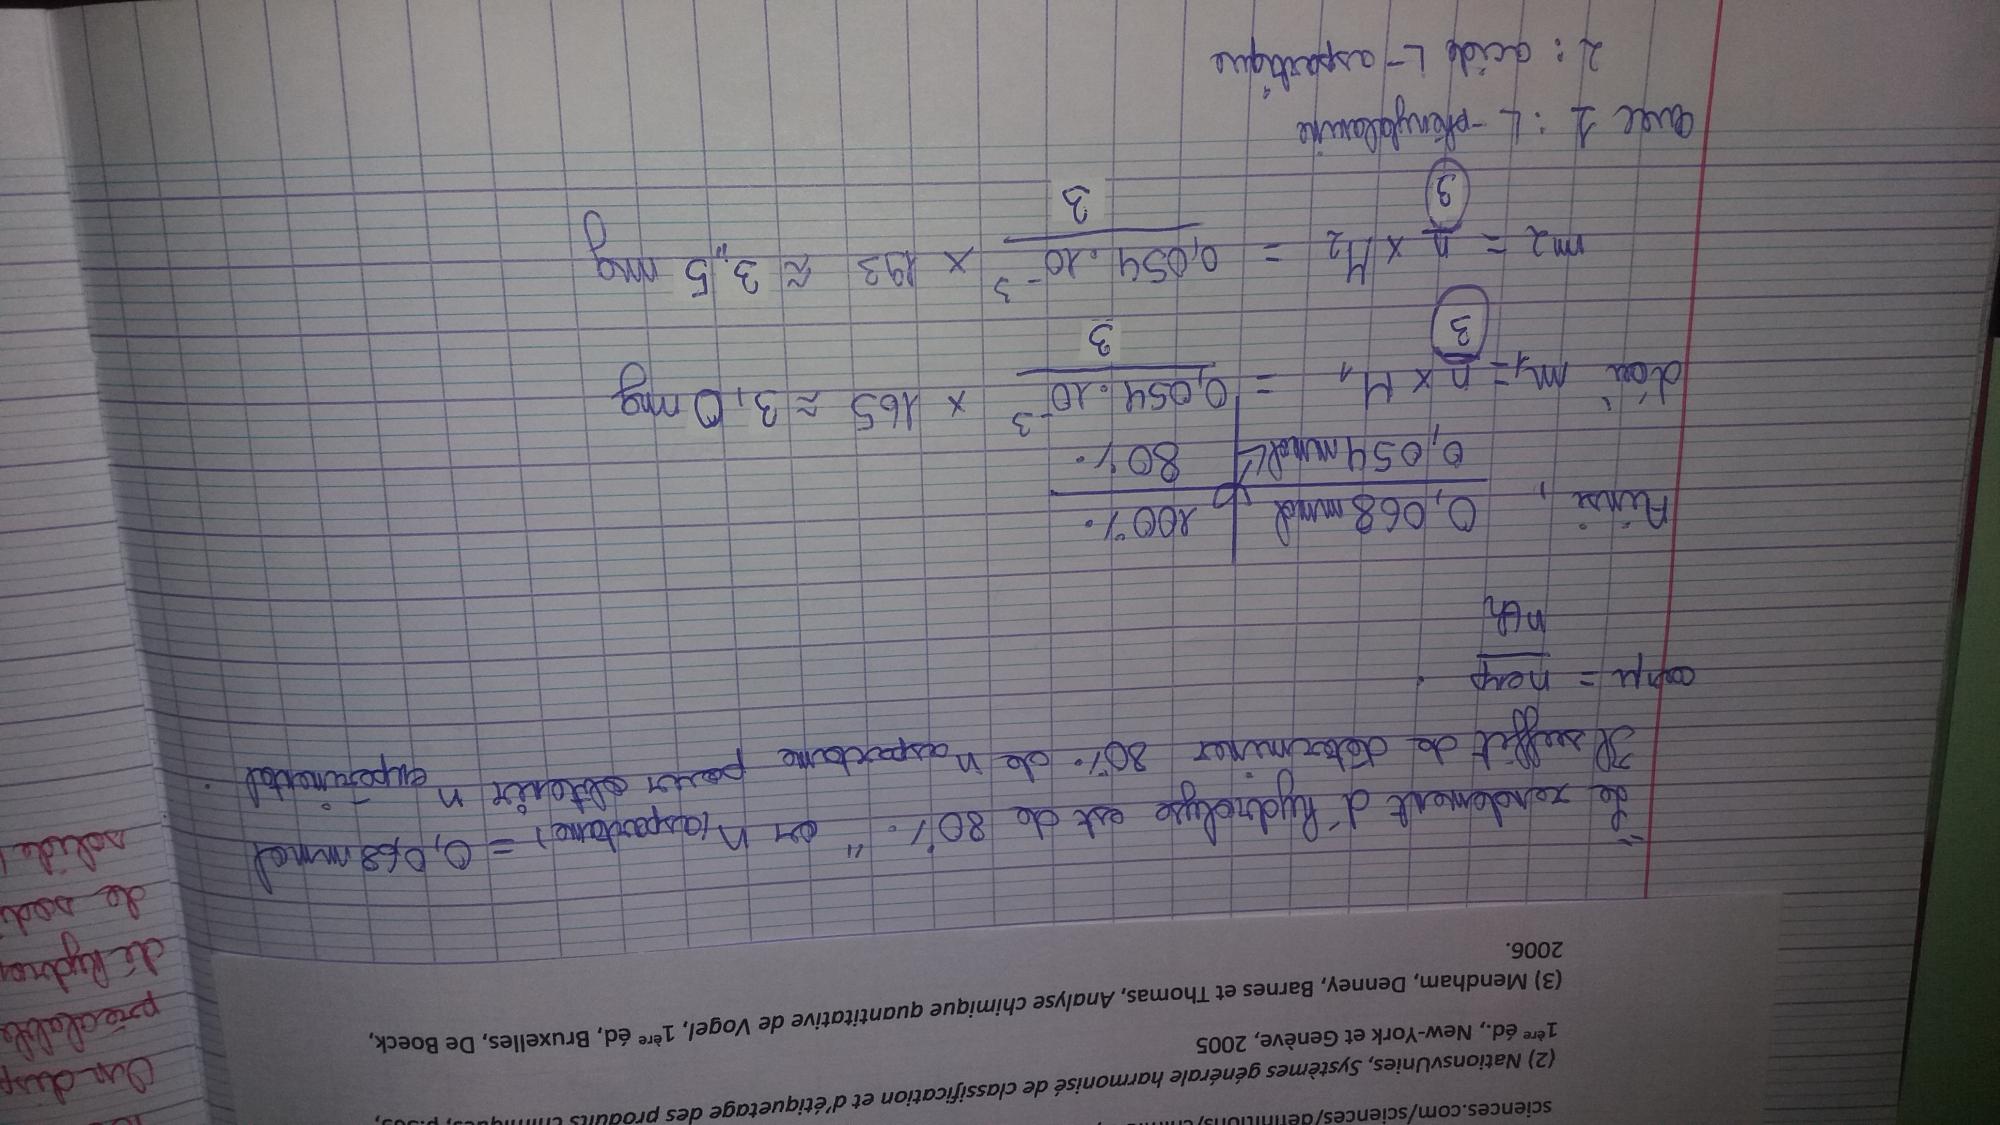 sciences.com/sciences/definitions/
(2) NationsvUnies, Systèmes générale harmonisé de classification et d'étiquetage des produits chimiques,
1ère éd., New-York et Genève, 2005
(3) Mendham, Denney, Barnes et Thomas, Analyse chimique quantitative de Vogel, 1ère éd, Bruxelles, De Boeck,
2006.
"Le rendement d'hydrolyse est de 80%." or n(aspartame) = 0,068 mmol
Il suffit de déterminer 80% de n aspartame pour obtenir n expérimental.
car μ = nexp / nth
Ainsi, 0,068 mmol | 100%
0,054 mmol | 80%
d'où m1 = n/3 × M1 = 0,054.10^-3 / 3 × 165 ≈ 3,0 mg
m2 = n/3 × M2 = 0,054.10^-3 / 3 × 193 ≈ 3,5 mg
avec 1 : L-phénylalanine
2 : acide L-aspartique
On disp
préalable
de sodi
solide